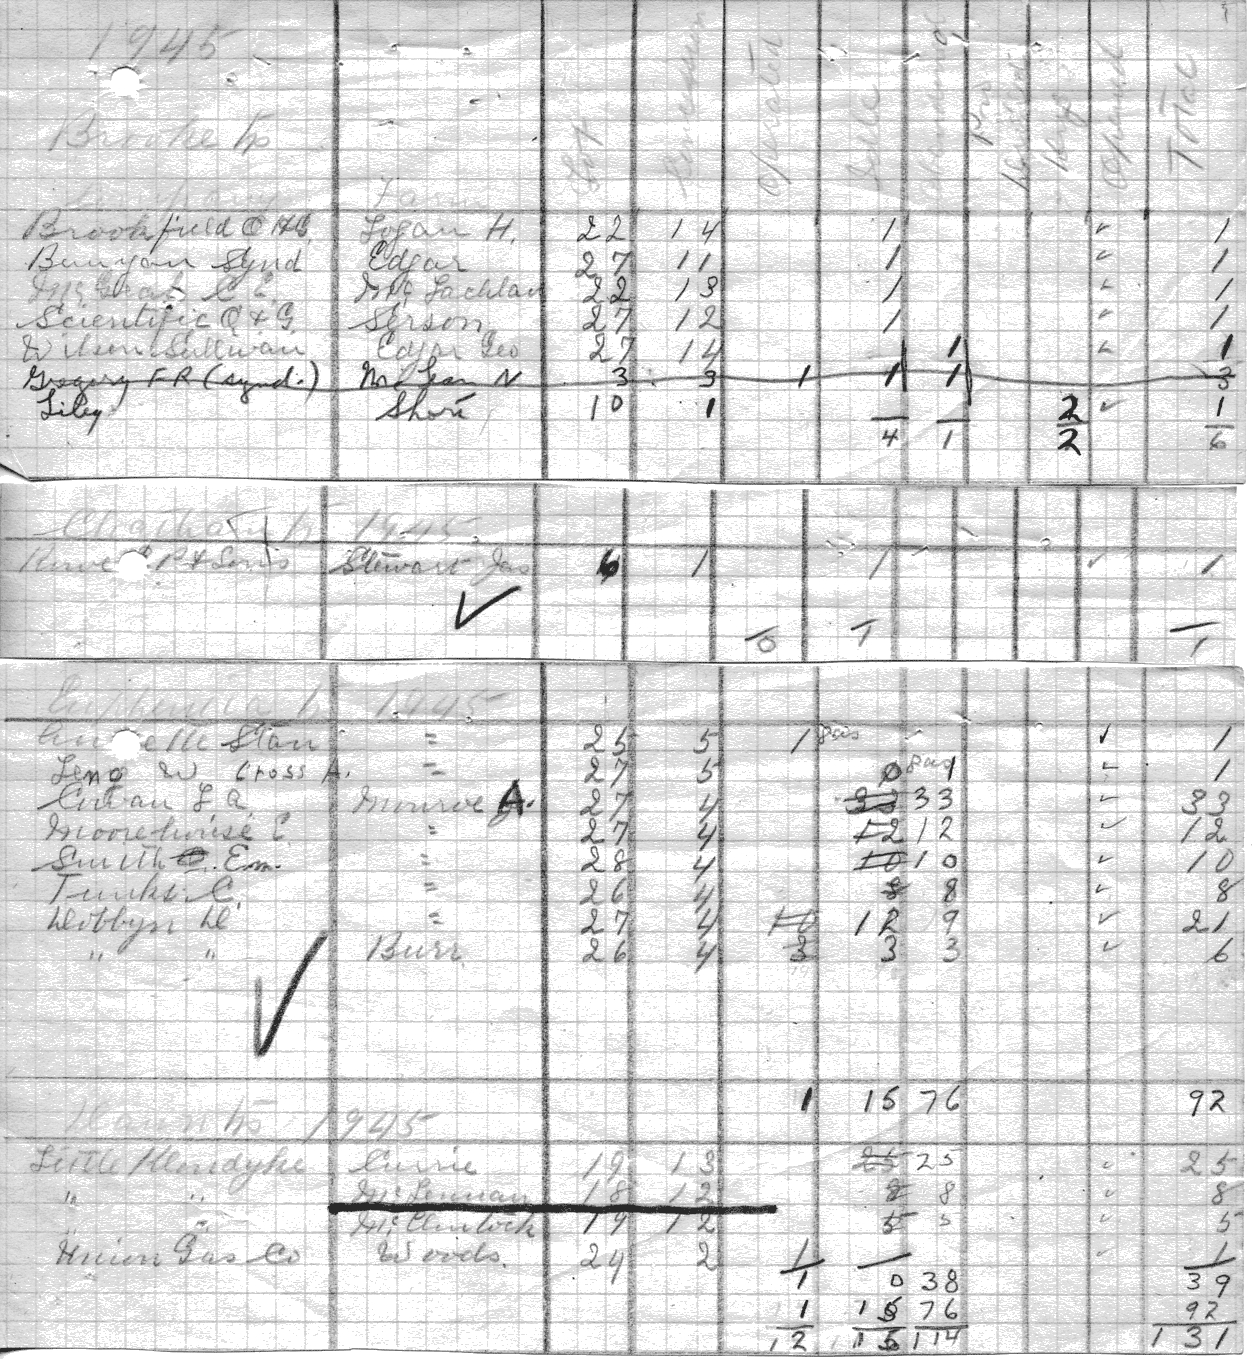 1945
Brooke tp
Company Farm Lot Concession Operator Idle Abandoned Opened Total
Brookfield O & G Logan H. 22 14 1 ✓ 1
Bunyan Synd Edgar 27 11 1 ✓ 1
C E. Mc Lachlan 22 13 1 ✓ 1
Scientific O & G Serson 27 12 1 ✓ 1
Wilson Sullivan Edgar Geo 27 14 1 1 ✓ 1
Gregory F R (synd.) McLean N 3 3 1 1 1 3
Liley Short 10 1 2 ✓ 1
4 1 2 6
Chatham tp 1945
P & Sons Stewart Jas 6 1 1 ✓ 1
✓
0 1 1
Euphemia tp 1945
Stan " 25 5 1 gas ✓ 1
Leng W. Cross A. " 27 5 0 gas 1 ✓ 1
L A Monroe A. 27 4 33 33 ✓ 33
Moorehouse C " 27 4 12 12 ✓ 12
Smith Em. " 28 4 10 10 ✓ 10
Tunks C. " 26 4 8 8 ✓ 8
Dobbyn D " 27 4 10 12 9 ✓ 21
" " Burr 26 4 3 3 3 ✓ 6
✓
1 15 76 92
Dawn tp 1945
Little Klondyke Currie 19 13 25 25 ✓ 25
" " McLennan 18 12 8 8 ✓ 8
" " McClintock 19 12 5 5 ✓ 5
Union Gas Co Woods. 24 2 1 ✓ 1
1 0 38 39
1 15 76 92
2 15 114 131